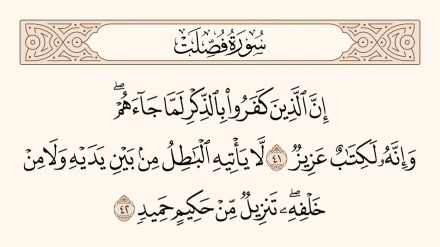 سُورَةُ فُصِّلَتْ
إِنَّ ٱلَّذِينَ كَفَرُوا۟ بِٱلذِّكْرِ لَمَّا جَآءَهُمْ ۖ
وَإِنَّهُۥ لَكِتَٰبٌ عَزِيزٌ ٤١ لَّا يَأْتِيهِ ٱلْبَٰطِلُ مِنۢ بَيْنِ يَدَيْهِ وَلَا مِنْ
خَلْفِهِۦ ۖ تَنزِيلٌ مِّنْ حَكِيمٍ حَمِيدٍ ٤٢